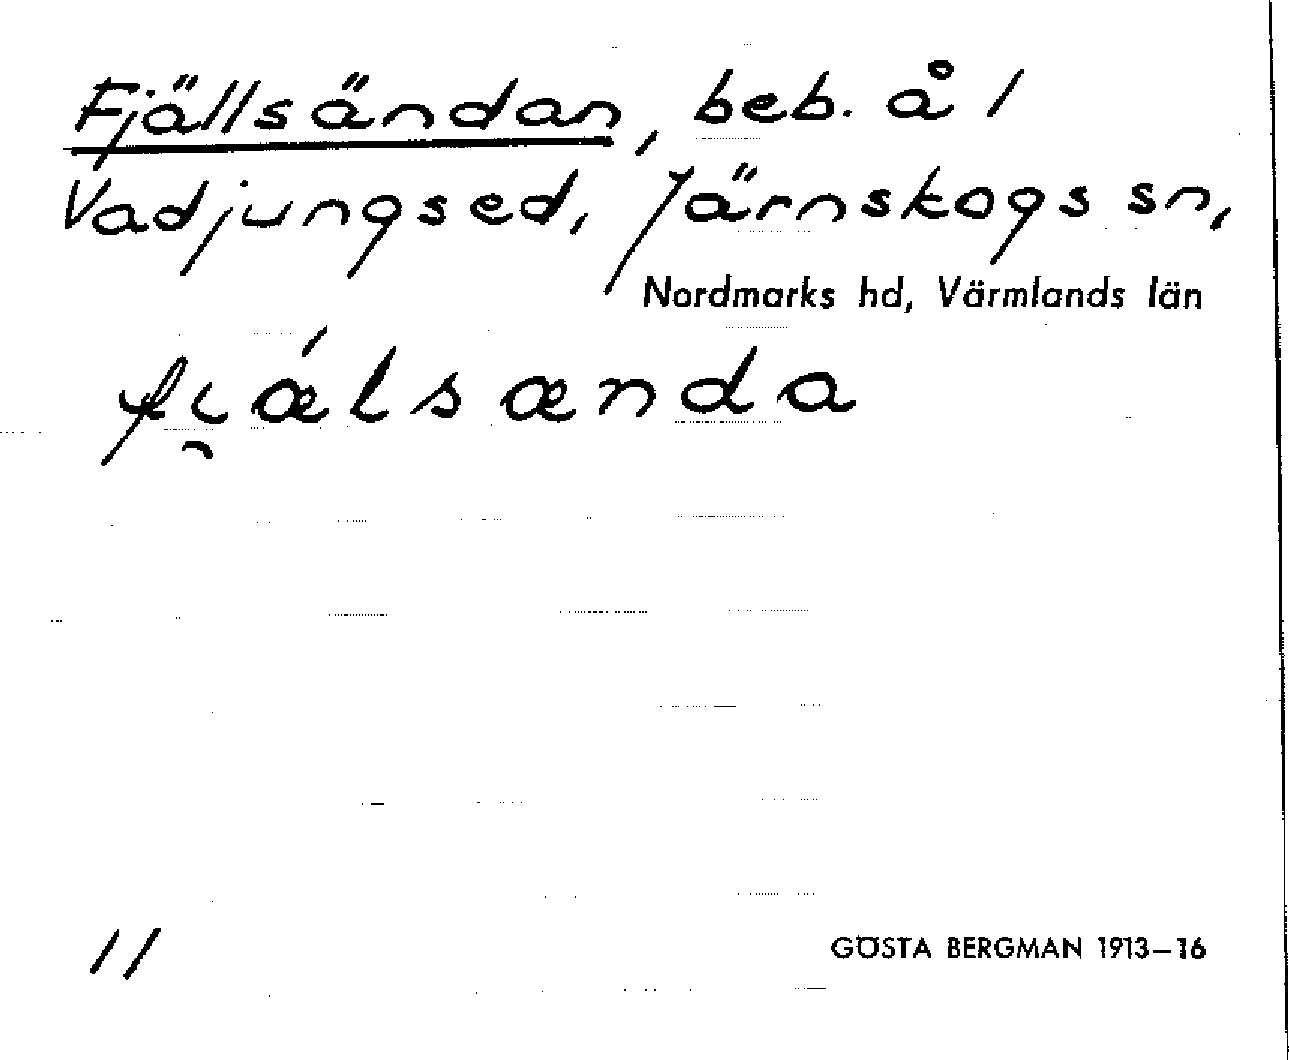 Fjällsändan, beb. å 1
Vadjungsed, Järnskogs sn,
Nordmarks hd, Värmlands län
fi̯ǽlsænda
11
GÖSTA BERGMAN 1913–16